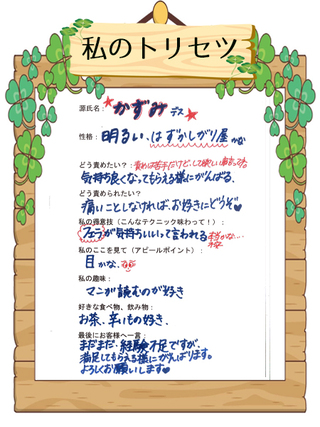 私のトリセツ
源氏名： ★かずみ デス★
性格： 明るい、はずかしがり屋 かな
どう責めたい？： 責めは苦手だけど、して欲しい事あったら
気持ち良くなってもらえる様にがんばる。
どう責められたい？
痛いことしなければ、お好きにどうぞ♥
私の得意技（こんなテクニック味わって！）：
フェラが気持ちいいって言われる
私のここを見て（アピールポイント）：
目かな。
私の趣味：
マンガ読むのが好き
好きな食べ物、飲み物：
お茶、辛いもの好き.
最後にお客様へ一言：
まだまだ 経験不足ですが、
満足してもらえる様にがんばります。
よろしくお願いします♥